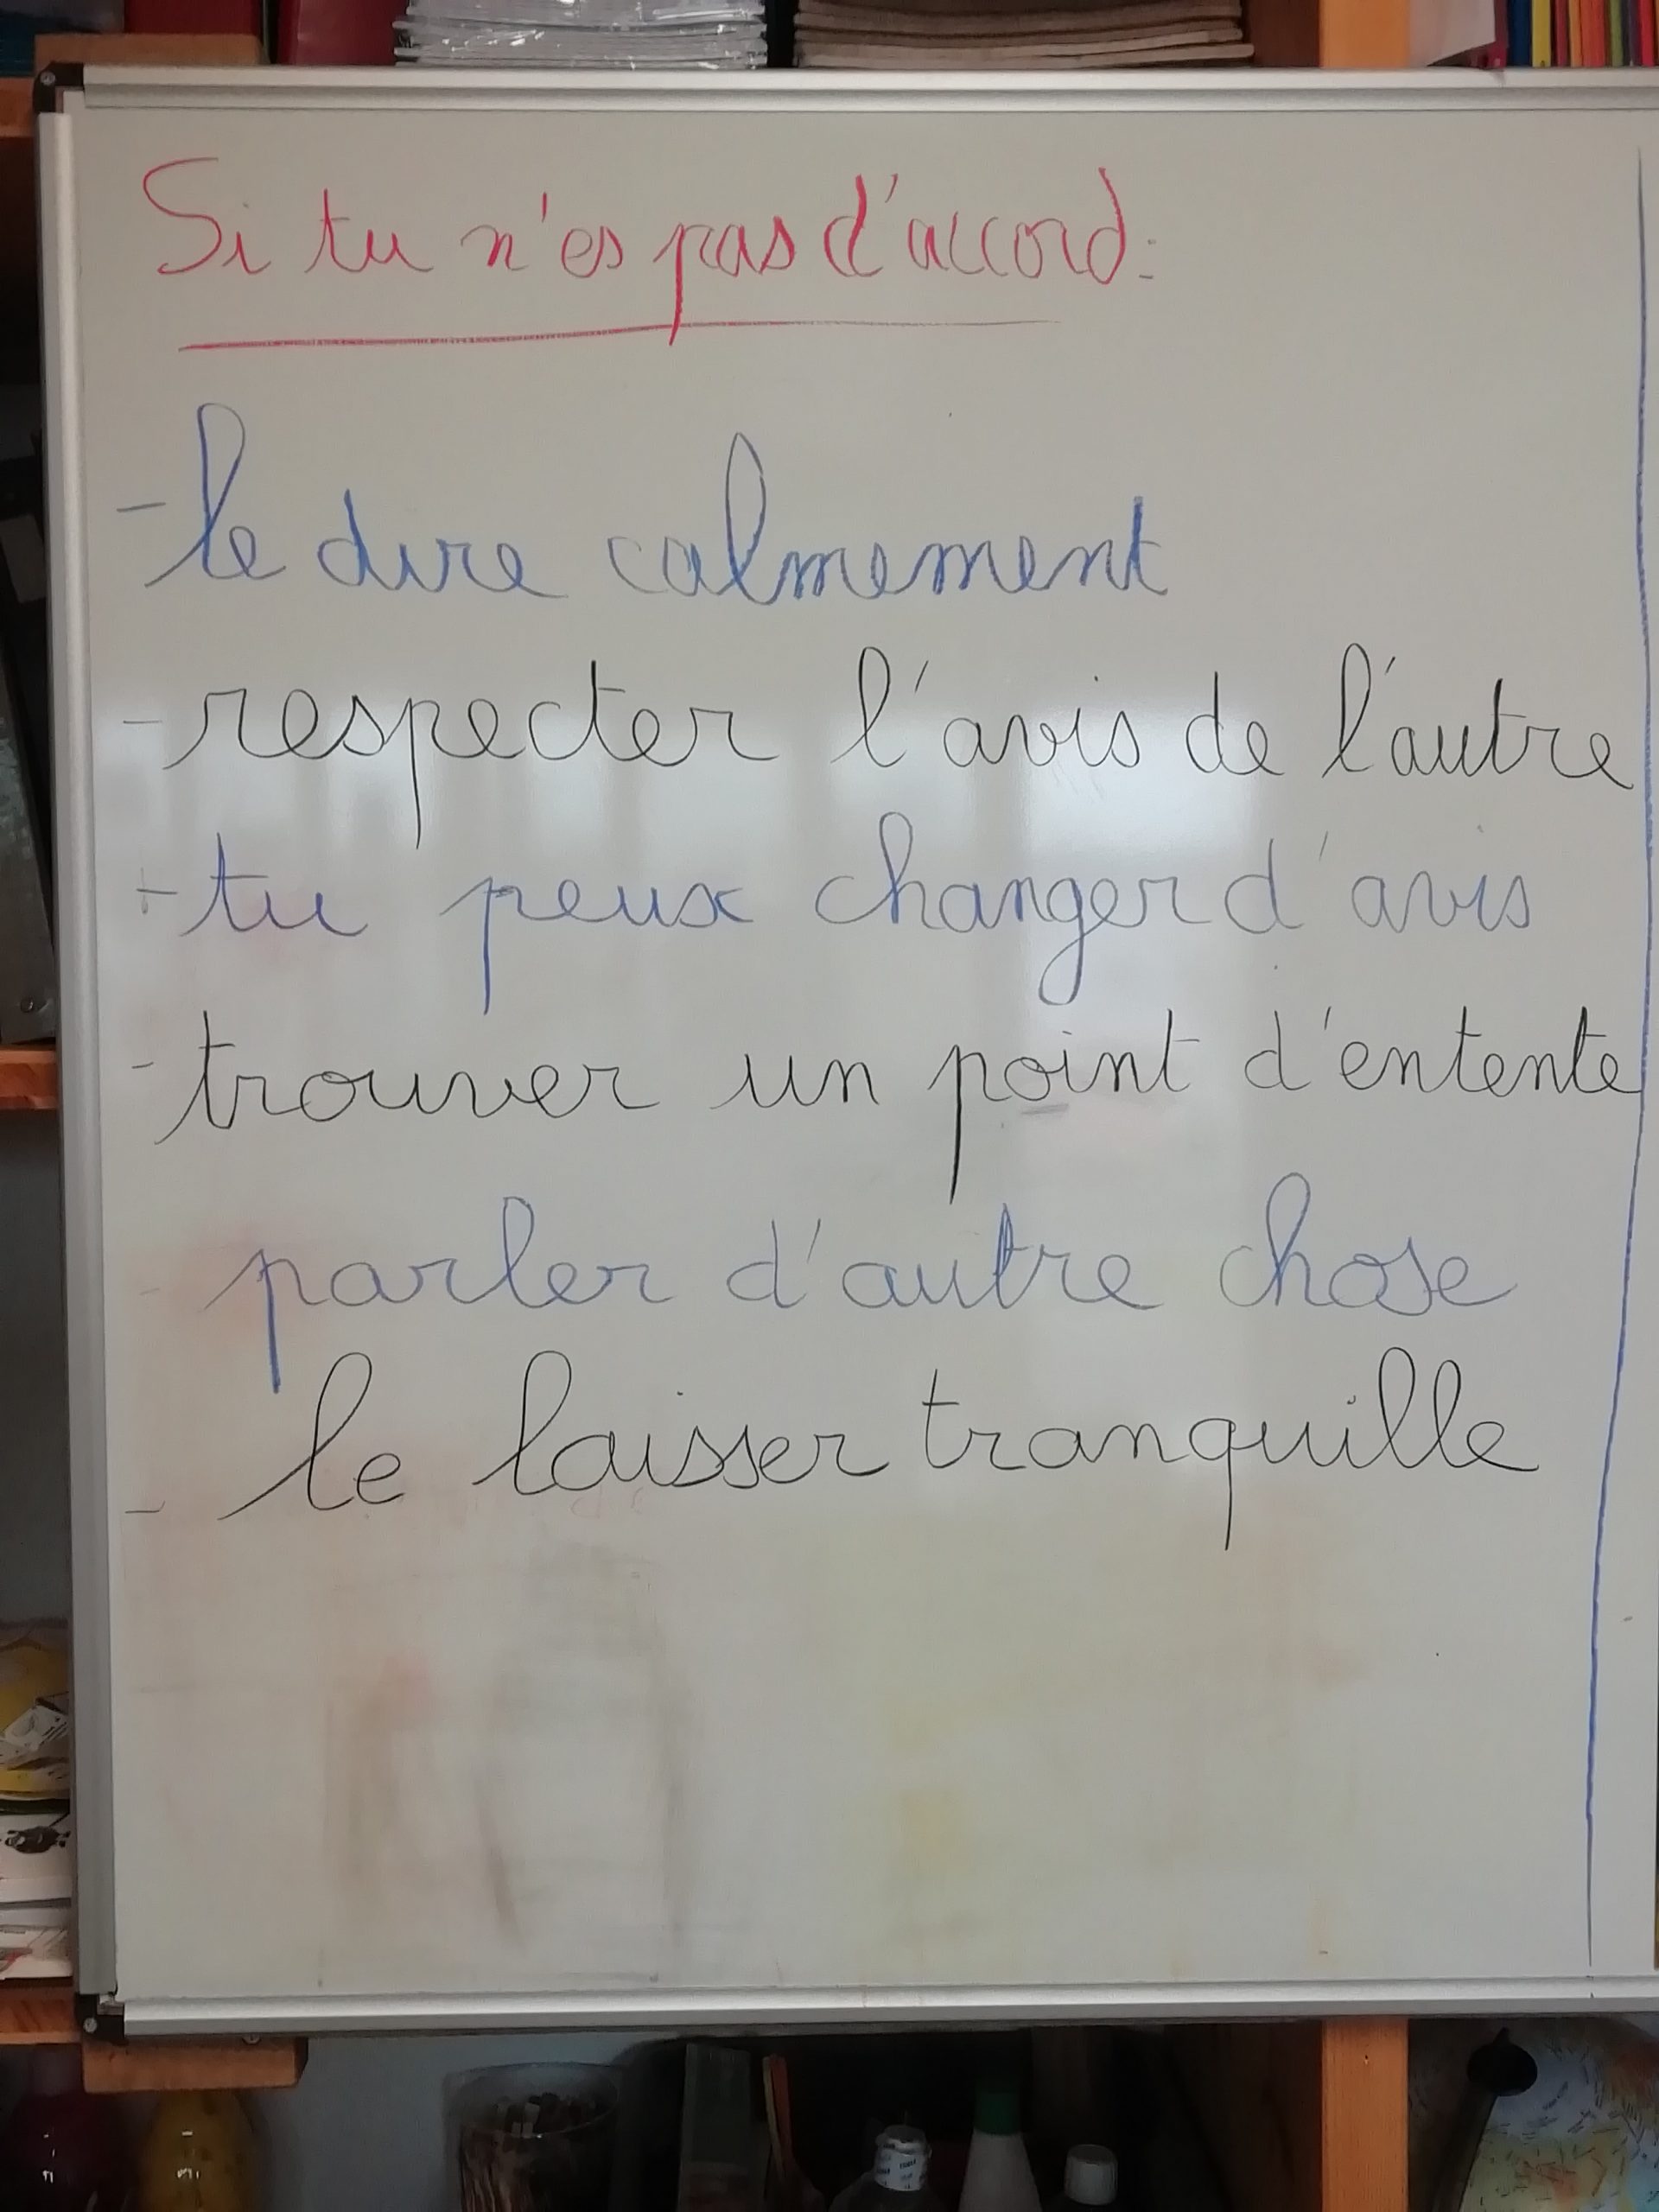 Si tu n'es pas d'accord:
- le dire calmement
- respecter l'avis de l'autre
+ tu peux changer d'avis
- trouver un point d'entente
- parler d'autre chose
- le laisser tranquille